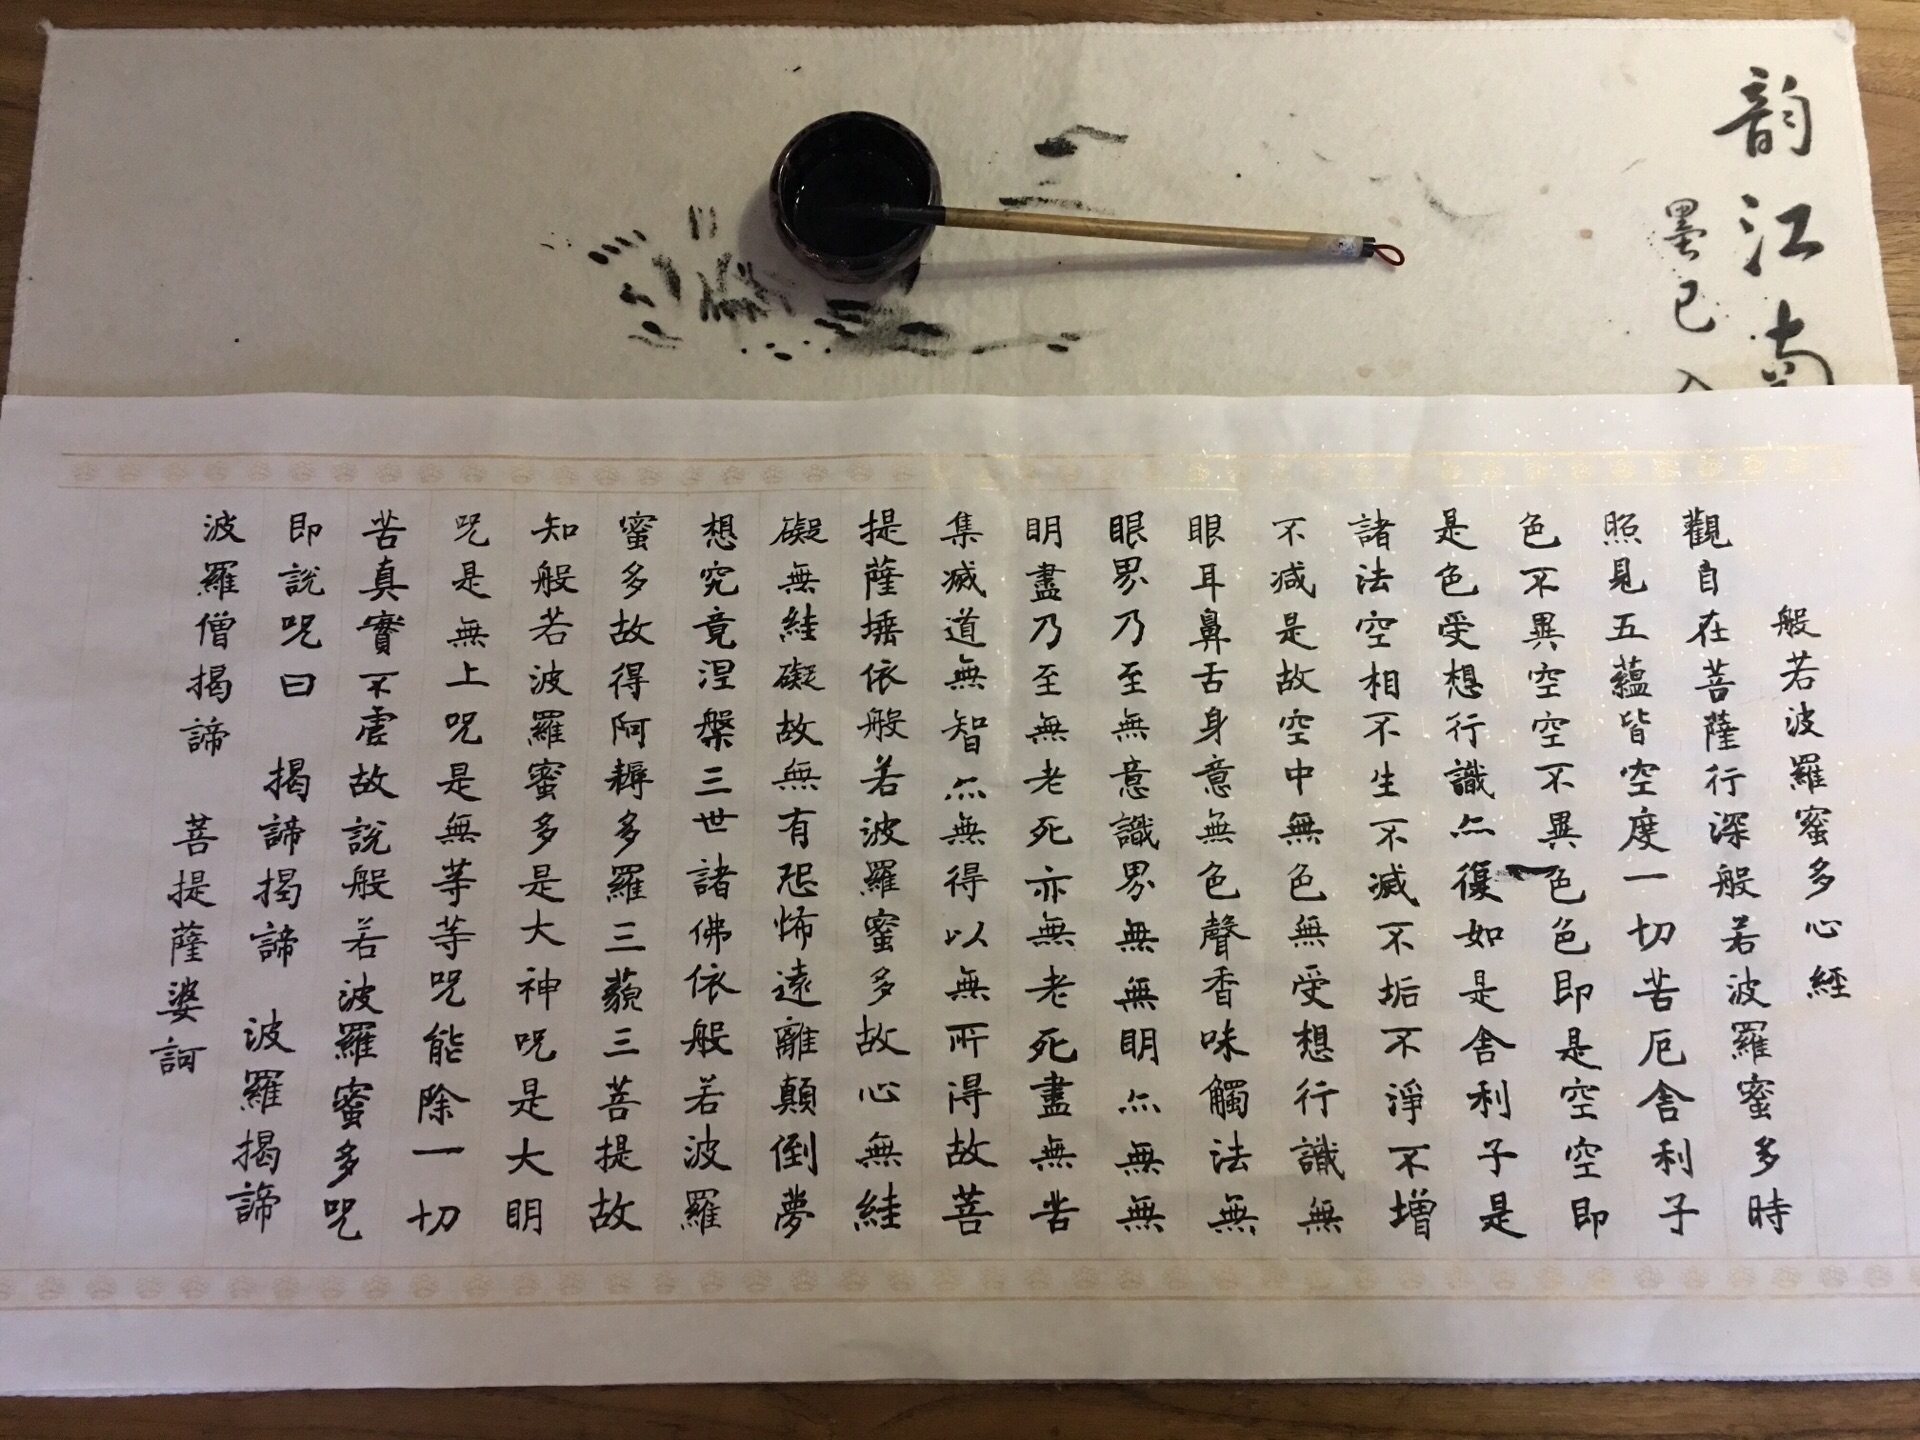 韵江南
墨已入
般若波羅蜜多心經
觀自在菩薩行深般若波羅蜜多時
照見五蘊皆空度一切苦厄舍利子
色不異空空不異色色即是空空即
是色受想行識亦復如是舍利子是
諸法空相不生不滅不垢不淨不增
不減是故空中無色無受想行識無
眼耳鼻舌身意無色聲香味觸法無
眼界乃至無意識界無無眀亦無無
眀盡乃至無老死亦無老死盡無苦
集滅道無智亦無得以無所得故菩
提薩埵依般若波羅蜜多故心無絓
礙無絓礙故無有恐怖遠離顛倒夢
想究竟涅槃三世諸佛依般若波羅
蜜多故得阿耨多羅三藐三菩提故
知般若波羅蜜多是大神呪是大眀
呪是無上呪是無等等呪能除一切
苦真實不虛故說般若波羅蜜多呪
即說呪曰 揭諦揭諦 波羅揭諦
波羅僧揭諦 菩提薩婆訶